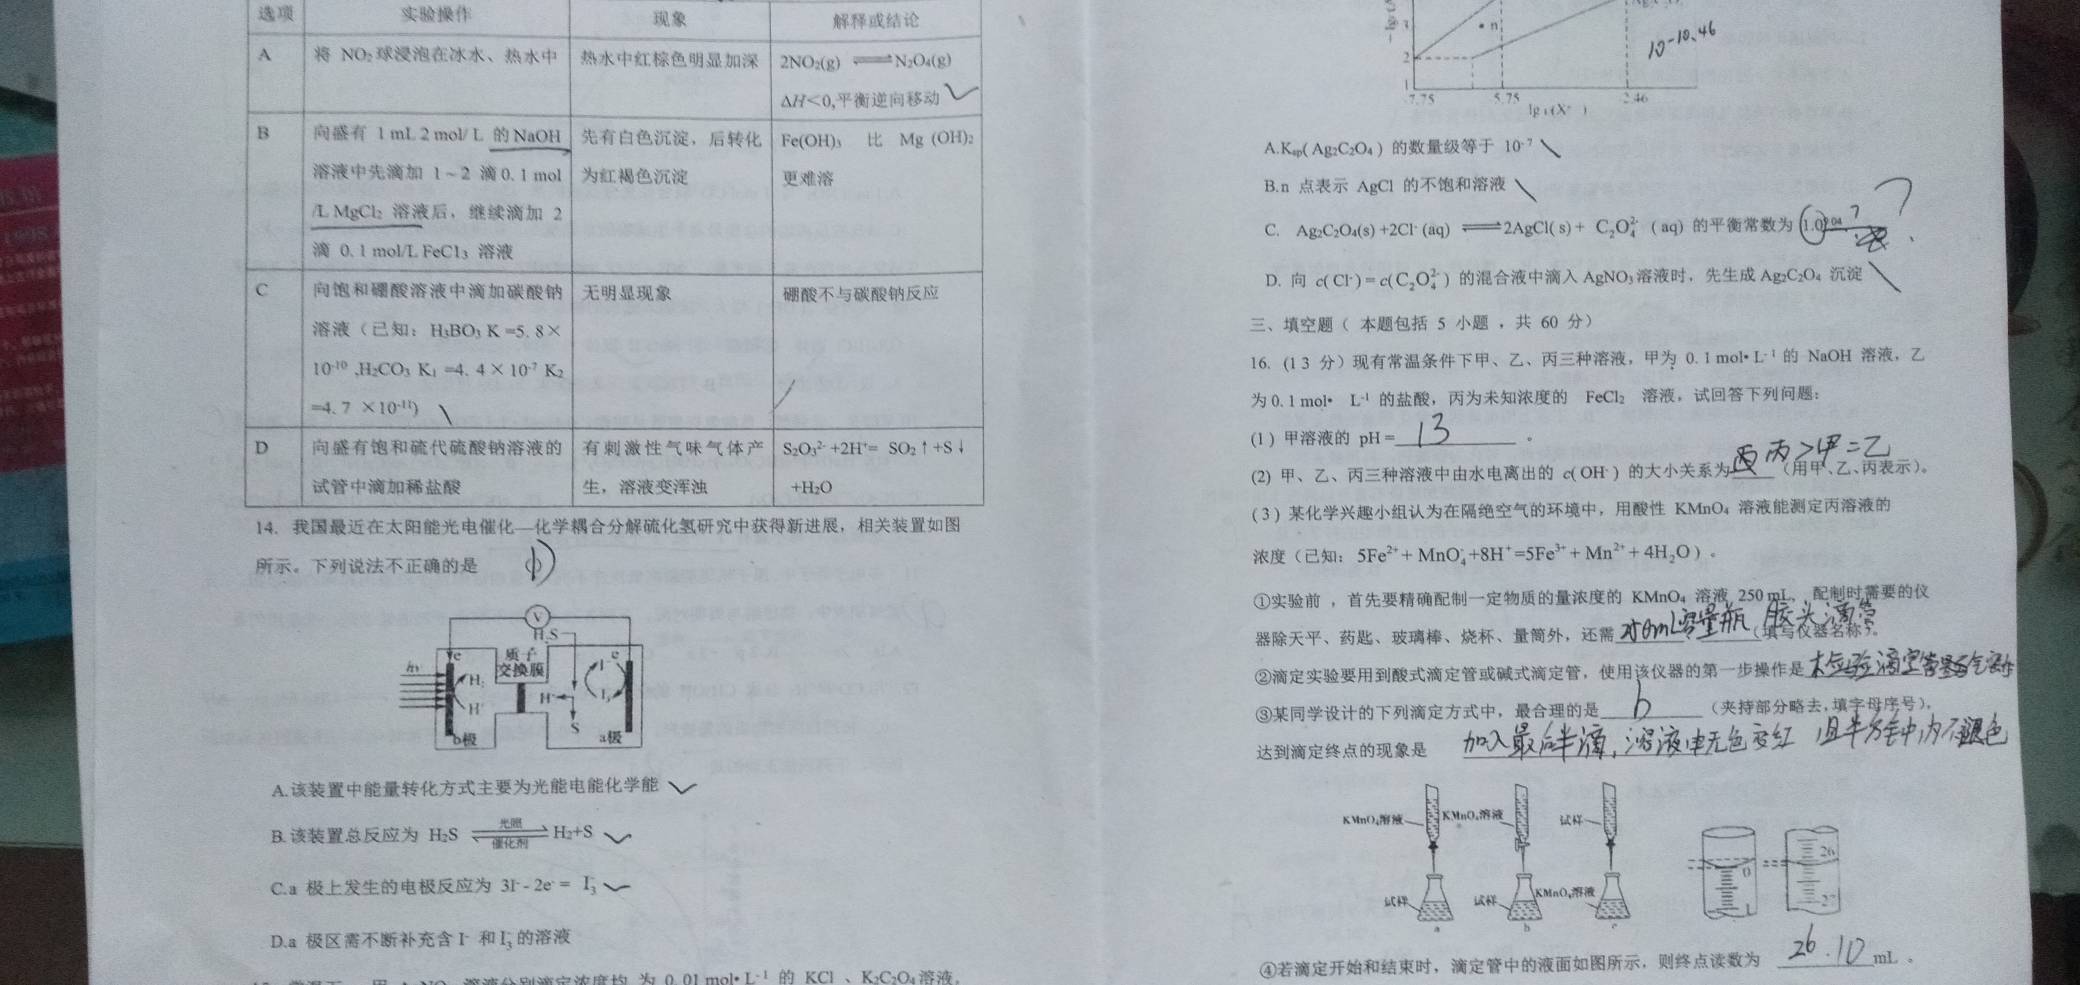 选项 实验操作 现象 解释或结论
A 将 NO₂球浸泡在冰水、热水中 热水中红棕色明显加深 2NO₂(g) ⇌ N₂O₄(g)
ΔH<0,平衡逆向移动
B 向盛有 1 mL 2 mol/ L 的 NaOH 先有白色沉淀，后转化 Fe(OH)₃ 比 Mg (OH)₂
溶液中先滴加 1～2 滴 0. 1 mol 为红褐色沉淀 更难溶
/L MgCl₂ 溶液后，继续滴加 2
滴 0. 1 mol/L FeCl₃ 溶液
C 向饱和硼酸溶液中滴加碳酸钠 无明显现象 硼酸不与碳酸钠反应
溶液（已知：H₃BO₃ K =5. 8×
10⁻¹⁰ ,H₂CO₃ K₁ =4. 4×10⁻⁷ K₂
=4. 7 ×10⁻¹¹)
D 向盛有饱和硫代硫酸钠溶液的 有刺激性气味气体产 S₂O₃²⁻+2H⁺= SO₂↑+S↓
试管中滴加稀盐酸 生，溶液变浑浊 +H₂O
14. 我国最近在太阳能光电催化—化学耦合分解硫化氢研究中获得新进展，相关装置如图
所示。下列说法不正确的是 D
V
H₂S
hν e⁻ 质子 e⁻
交换膜
H₂ I⁻
H⁺ H⁺ I₃⁻
S
b极 a极
A.该装置中能量转化方式主要为光能电能化学能
B.该装置总反应为 H₂S 光照 催化剂 H₂+S
C.a 极上发生的电极反应为 3I⁻- 2e⁻= I₃⁻
D.a 极区需不断补充含 I⁻ 和 I₃⁻的溶液
为 0.01 mol• L⁻¹ 的 KCl 、K₂C₂O₄溶液,
3 n
2
1
-7.75 -5.75 -2.46
10⁻¹⁰·⁴⁶
A.Kₛₚ( Ag₂C₂O₄ ) 的数量级等于 10⁻⁷
B.n 点表示 AgCl 的不饱和溶液
C. Ag₂C₂O₄(s) +2Cl⁻(aq) ⇌ 2AgCl( s)+ C₂O₄²⁻ ( aq) 的平衡常数为 ?
D. 向 c( Cl⁻) = c( C₂O₄²⁻ ) 的混合液中滴入 AgNO₃溶液时，先生成 Ag₂C₂O₄ 沉淀
三、填空题（ 本题包括 5 小题 ，共 60 分）
16. (13 分）现有常温条件下甲、乙、丙三种溶液，甲为 0. 1 mol• L⁻¹ 的 NaOH 溶液，乙
为 0. 1 mol• L⁻¹ 的盐酸，丙为未知浓度的 FeCl₂ 溶液，试回答下列问题：
(1 ) 甲溶液的 pH = 13 。
(2) 甲、乙、丙三种溶液中由水电离出的 c( OH⁻ ) 的大小关系为 丙>甲=乙 （用甲、乙、丙表示）。
( 3 ) 某化学兴趣小组认为在隔绝空气的环境中，用酸性 KMnO₄ 溶液能测定丙溶液的
浓度（已知： 5Fe²⁺+ MnO₄⁻+8H⁺=5Fe³⁺+ Mn²⁺+ 4H₂O ) 。
①实验前 ，首先要精确配制一定物质的量浓度的 KMnO₄ 溶液 250 mL， 配制时需要的仪
器除天平、药匙、玻璃棒、烧杯、量筒外，还需 容量瓶 胶头滴管 （填写仪器名称）。
②滴定实验要用到酸式滴定管或碱式滴定管，使用该仪器的第一步操作是 检验滴定管是否
③某同学设计的下列滴定方式中，最合理的是 b （夹持部分略去,填字母序号），
达到滴定终点的现象是 加入最后半滴，溶液由无色变红 且半分钟内不褪色
KMnO₄溶液 KMnO₄溶液 试样
0 26
试样 试样 KMnO₄溶液
1 27
a b c
④若滴定开始和结束时，滴定管中的液面如图所示，则终点读数为 26.10 mL 。